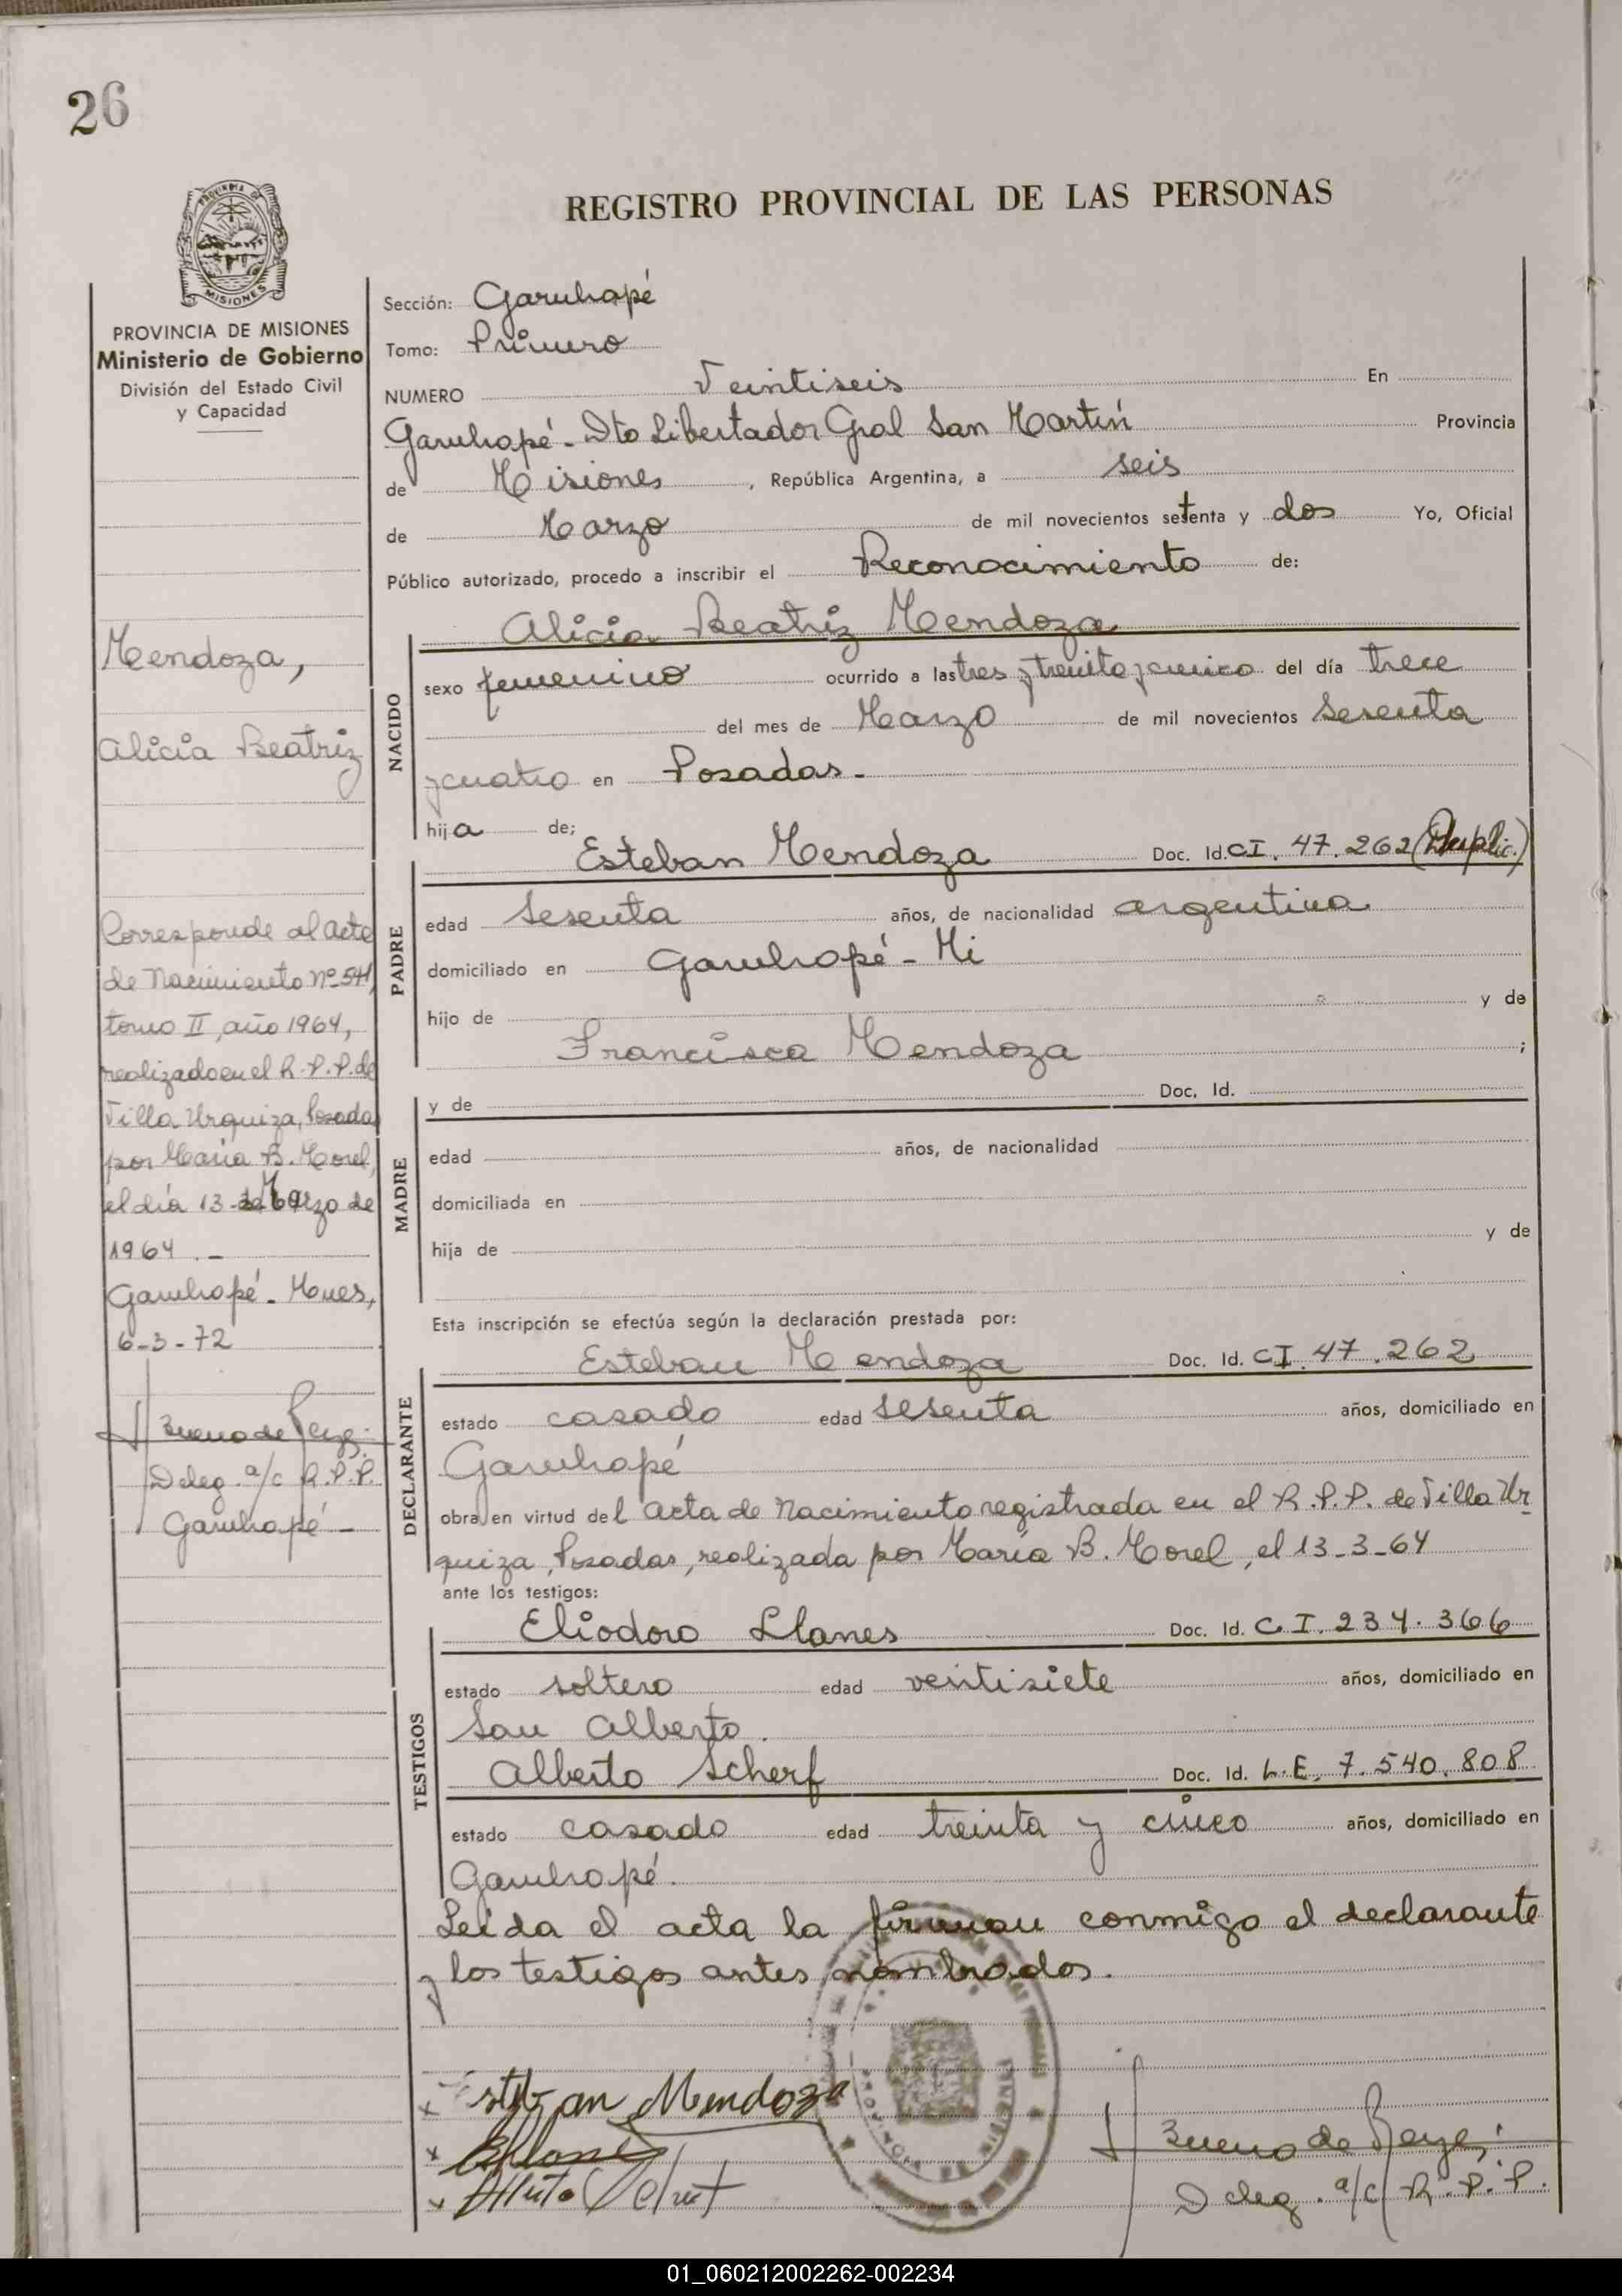 26
REGISTRO PROVINCIAL DE LAS PERSONAS
PROVINCIA DE MISIONES
Ministerio de Gobierno
División del Estado Civil
y Capacidad
Mendoza,
Alicia Beatriz
Corresponde al Acta
de Nacimiento Nº 541,
tomo II, año 1964,
realizado en el R.P.P. de
Villa Urquiza, Posadas
por Maria B. Morel,
el día 13 de Marzo de
1964.-
Garuhapé - Mnes,
6-3-72
Bueno de Reyes
Deleg. a/c R.P.P.
Garuhapé -
Sección: Garuhapé
Tomo: Primero
NUMERO Veintiseis En
Garuhapé - Dto Libertador Gral San Martín Provincia
de Misiones, República Argentina, a seis
de Marzo de mil novecientos setenta y dos Yo, Oficial
Público autorizado, procedo a inscribir el Reconocimiento de:
Alicia Beatriz Mendoza
NACIDO
sexo femenino ocurrido a las tres y treinta y cinco del día trece
del mes de Marzo de mil novecientos sesenta
y cuatro en Posadas.-
hija de;
PADRE
Esteban Mendoza Doc. Id. CI. 47.262 (Duplic.)
edad sesenta años, de nacionalidad argentina
domiciliado en Garuhapé - Mi
hijo de y de
Francisca Mendoza ;
MADRE
y de Doc. Id.
edad años, de nacionalidad
domiciliada en
hija de y de
Esta inscripción se efectúa según la declaración prestada por:
DECLARANTE
Esteban Mendoza Doc. Id. CI. 47.262
estado casado edad sesenta años, domiciliado en
Garuhapé
obra en virtud del acta de Nacimiento registrada en el R.P.P. de Villa Ur-
quiza, Posadas, realizada por María B. Morel, el 13-3-64
ante los testigos:
TESTIGOS
Eliodoro Llanes Doc. Id. C.I. 234.366
estado soltero edad veintisiete años, domiciliado en
San Alberto.
Alberto Scherf Doc. Id. L.E. 7.540.808
estado casado edad treinta y cinco años, domiciliado en
Garuhapé.
Leída el acta la firman conmigo el declarante
y los testigos antes nombrados.
x Esteban Mendoza
x
x
Bueno de Reyes
Deleg. a/c R.P.P.
01_060212002262-002234